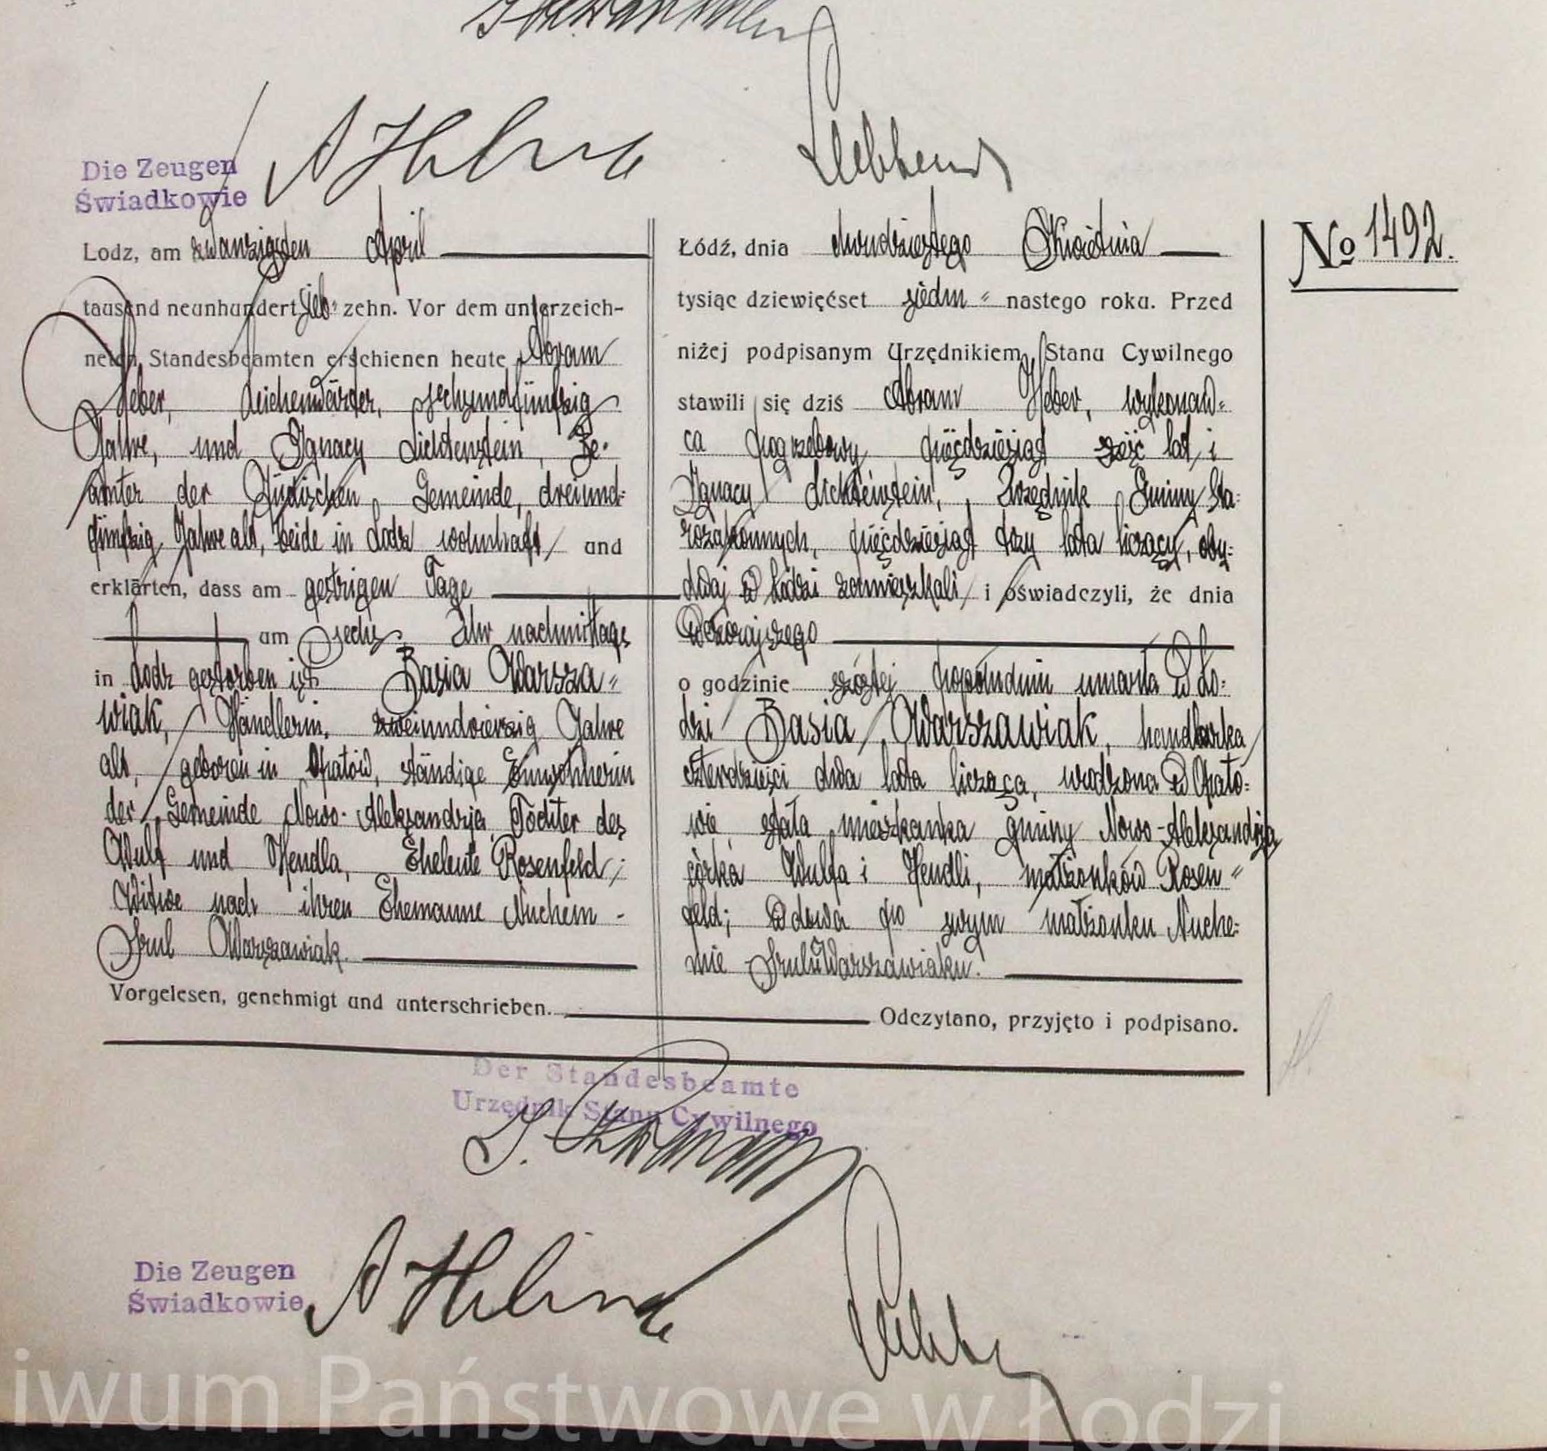 Die Zeugen
Świadkowie
Lodz, am zwanzigsten April
tausend neunhundert sieb- zehn. Vor dem unterzeich-
neten Standesbeamten erschienen heute Abram
Heber, Leichenwärter, sechsundfünfzig
Jahre, und Ignacy Lichtenstein, Be-
amter der Jüdischen Gemeinde, dreiund-
fünfzig Jahre alt, beide in Lodz wohnhaft, und
erklärten, dass am gestrigen Tage
um sechs Uhr nachmittags
in Lodz gestorben ist Basia Warsza=
wiak, Händlerin, zweiundvierzig Jahre
alt, geboren in Opatów, ständige Einwohnerin
der Gemeinde Nowo-Aleksandrja, Tochter des
Wulf und Hendla, Eheleute Rosenfeld;
Witwe nach ihren Ehemanne Nuchem-
Srul Warszawiak.
Vorgelesen, genehmigt und unterschrieben.
Łódź, dnia dwudziestego Kwietnia
tysiąc dziewięćset siedm= nastego roku. Przed
niżej podpisanym Urzędnikiem Stanu Cywilnego
stawili się dziś Abram Heber, wykonaw-
ca pogrzebowy pięćdziesiąt sześć lat i
Ignacy Lichtenstein, Urzędnik Gminy Sta-
rozakonnych, pięćdziesiąt trzy lata liczący, oby-
dwaj w Łodzi zamieszkali, i oświadczyli, że dnia
wczorajszego
o godzinie szóstej popołudniu umarła w Ło-
dzi Basia Warszawiak, handlarka
czterdzieści dwa lata licząca, urodzona w Opato-
wie stała mieszkanka gminy Nowo-Aleksandrja
córka Wulfa i Hendli, małżonków Rosen=
feld; wdowa po swym małżonku Nuche-
mie Srulu Warszawiaku.
Odczytano, przyjęto i podpisano.
No 1492.
Der Standesbeamte
Urzędnik Stanu Cywilnego
Die Zeugen
Świadkowie
iwum Państwowe w Łodzi